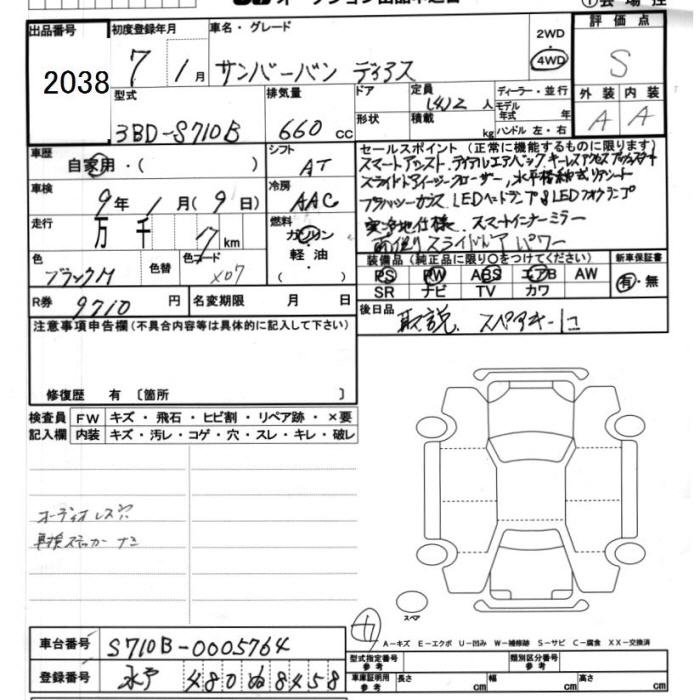 出品番号 初度登録年月 車名・グレード 2WD 評価点
2038 7 1月 サンバーバン ディアス 4WD S
型式 排気量 ドア 定員 人 ディーラー・並行 外装 内装
3BD-S710B 660 cc 形状 積載 kg モデル年式 年 ハンドル 左・右 A A
車歴 シフト セールスポイント(正常に機能するものに限ります)
自家用・( ) AT スマートアシスト
車検 冷房 スライドドアイージークローザー, 水平格納式リアシート
9年 1月(9日) AAC LEDヘッドランプ LEDフォグランプ
走行 燃料 寒冷地仕様 スマートインナーミラー
万 千 7 km ガソリン・ 両側スライドドア パワー
軽油・ 装備品(純正品に限り○をつけてください) 新車保証書
色 色替 色コード PS PW ABS エアB AW 有・無
ブラックM X07 SR ナビ TV カワ
R券 9710円 名変期限 月 日 後日品 取説. スペアキー1コ
注意事項申告欄(不具合内容等は具体的に記入して下さい)
修復歴 有 〔箇所 〕
検査員 FW キズ・飛石・ヒビ割・リペア跡・×要
記入欄 内装 キズ・汚レ・コゲ・穴・スレ・キレ・破レ
オーディオレス穴
車検ステッカーナシ
スペア
A-キズ E-エクボ U-凹み W-補修跡 S-サビ C-腐食 XX-交換済
車台番号 S710B-0005764
型式指定番号 参考 類別区分番号 参考
登録番号 水戸 480 ぬ 8458
車庫証明用 参考 長さ cm 幅 cm 高さ cm